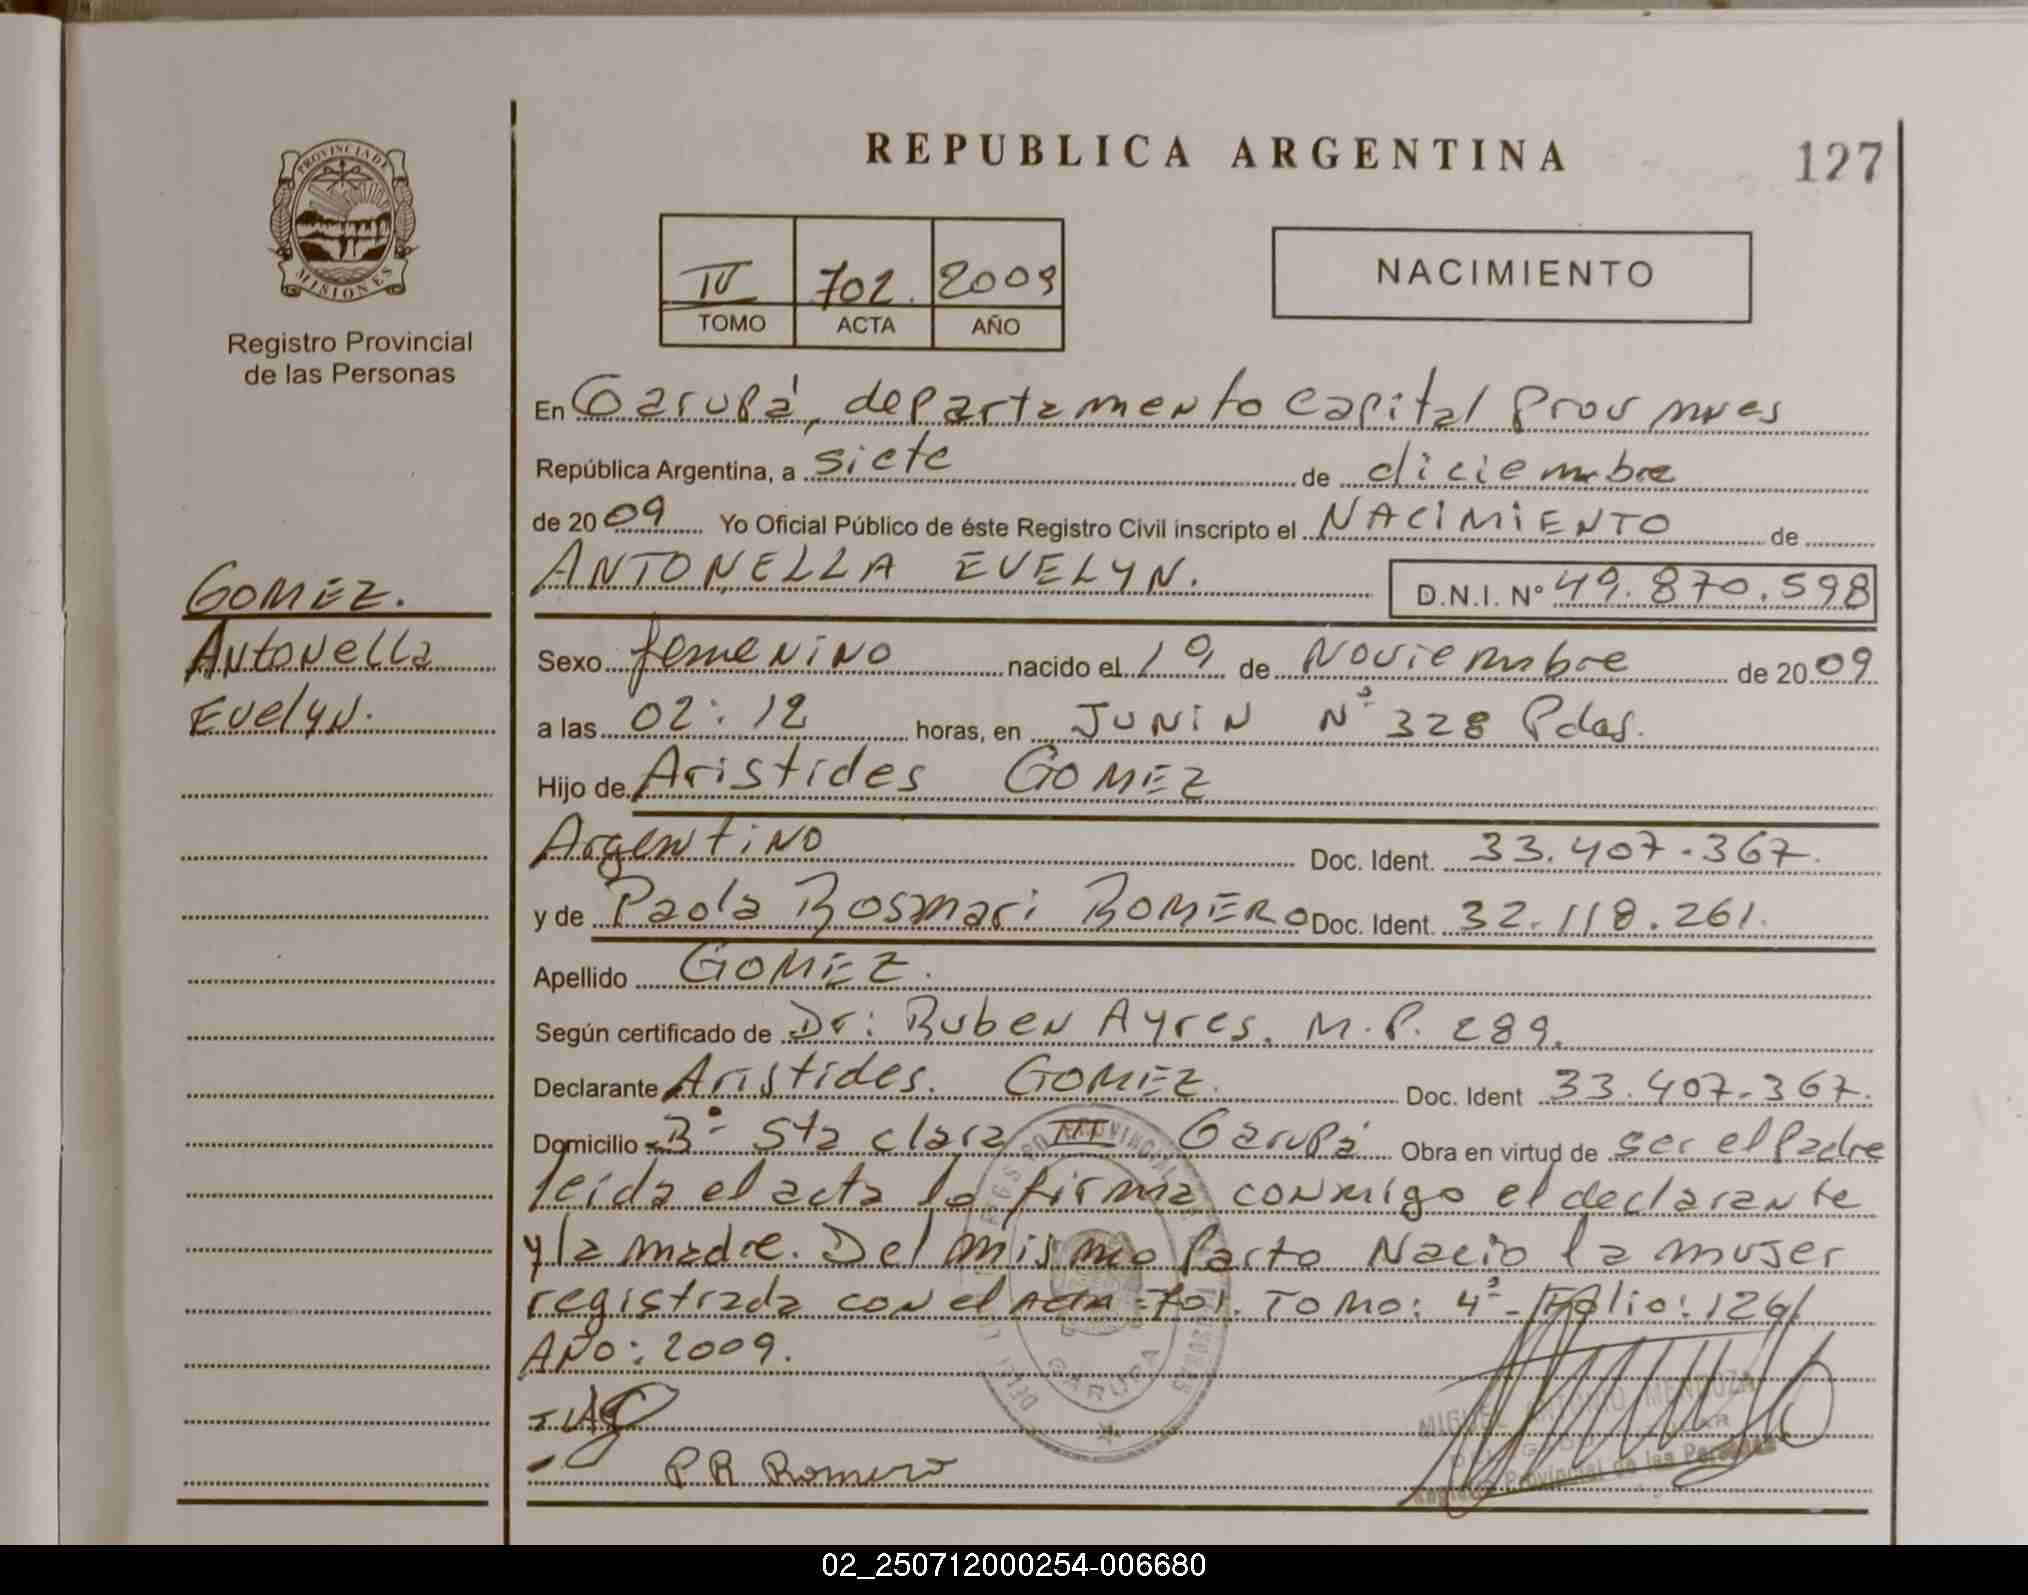 REPUBLICA ARGENTINA
127
PROVINCIA DE
MISIONES
Registro Provincial
de las Personas
IV 702. 2009
TOMO ACTA AÑO
NACIMIENTO
En Garupá, departamento Capital Prov mnes
República Argentina, a siete de diciembre
de 2009 Yo Oficial Público de éste Registro Civil inscripto el NACIMIENTO de
ANTONELLA EVELYN. D.N.I. Nº 49.870.598
GOMEZ.
Antonella
Evelyn.
Sexo femenino nacido el 19 de Noviembre de 2009
a las 02:12 horas, en JUNIN Nº 328 Pdas.
Hijo de Aristides GOMEZ
Argentino Doc. Ident. 33.407.367.
y de Paola Rosmari ROMERO Doc. Ident. 32.118.261.
Apellido GOMEZ.
Según certificado de Dr: Ruben Ayres. M.P. 289.
Declarante Aristides. GOMEZ. Doc. Ident 33.407.367.
Domicilio Bº Sta clara III Garupá Obra en virtud de ser el Padre
leida el acta la firma conmigo el declarante
y la madre. Del mismo Parto Nacio la mujer
registrada con el acta 701. TOMO: 4º - Folio: 126/
AÑO: 2009.
GARUPA
P R Romero
MIGUEL ANTONIO MENDOZA
Registro Provincial de las Personas
02_250712000254-006680